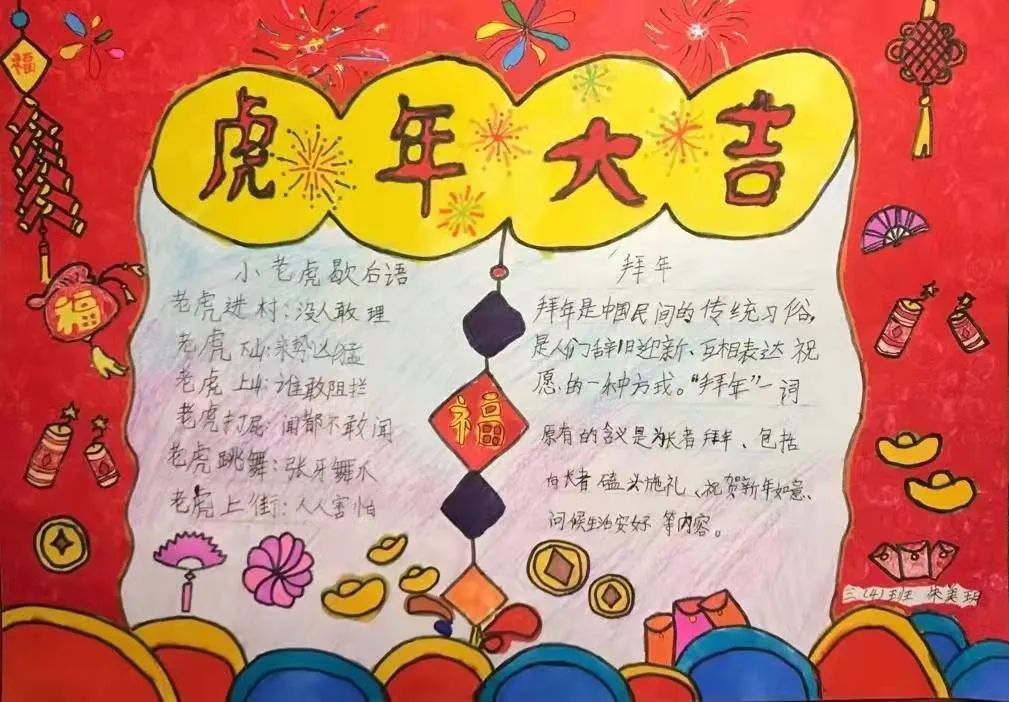 虎年大吉
福
福
福
小老虎歇后语
老虎进村:没人敢理
老虎下山:来势凶猛
老虎上山:谁敢阻拦
老虎打屁:闻都不敢闻
老虎跳舞:张牙舞爪
老虎上街:人人害怕
拜年
拜年是中国民间的传统习俗,
是人们辞旧迎新、互相表达祝
愿的一种方式。“拜年”一词
原有的含义是为长者拜年、包括
向长者磕头施礼、祝贺新年如意、
问候生活安好等内容。
三(4)班